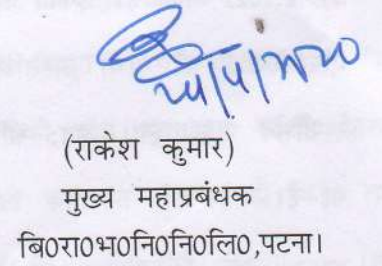 (राकेश कुमार)
मुख्य महाप्रबंधक
बि0रा0भ0नि0नि0लि0,पटना।